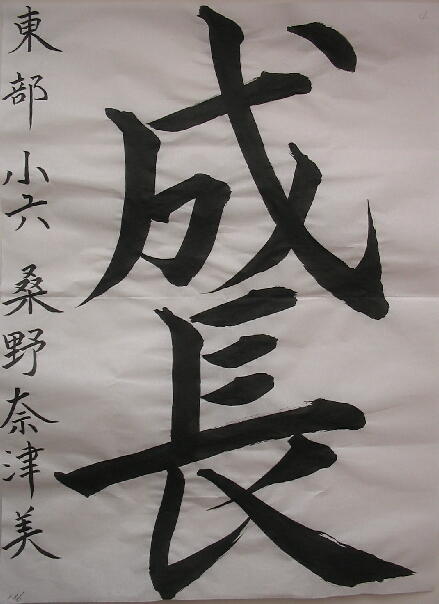 成長
東部小六 桑野奈津美